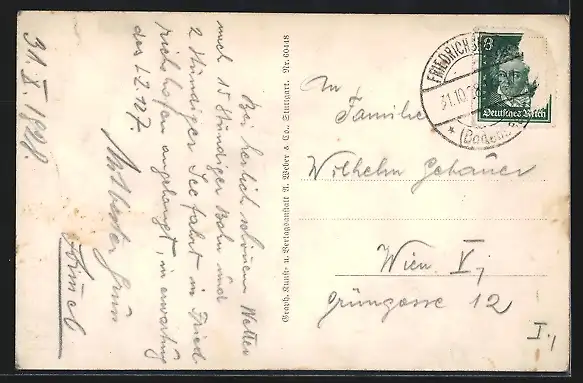 31. X. 1928.
Bei herlich schönen Wetter
nach 15 Stündiger Bahn und
2 Stündiger See fahrt in Fried-
richshafen angelangt, in erwartung
des L.Z. 127.
Mit besten Gruss
Graph. Kunst- u. Verlagsanstalt A. Weber & Co., Stuttgart. Nr. 60448
FRIEDRICHSH
31.10.28
(Bodens
8
Deutsches Reich
An
Familie
Wilhelm Gebauer
Wien V,
Grüngasse 12
I.,